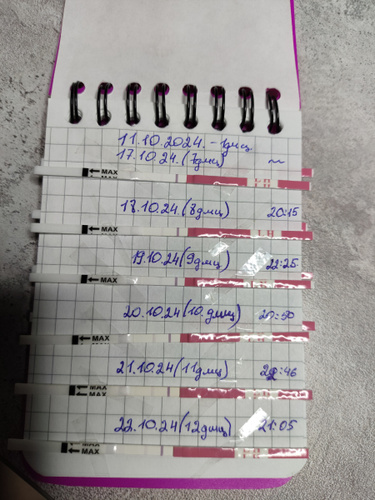 11.10.2024. - 1дмц
17.10.24. (7дмц) ~
MAX LH
18.10.24. (8дмц) 20:15
MAX LH
19.10.24 (9дмц) 22:25
MAX
20.10.24 (10 дмц) 20:50
MAX
21.10.24 (11дмц) 22:46
MAX
MAX
22.10.24 (12дмц) 21:05
MAX